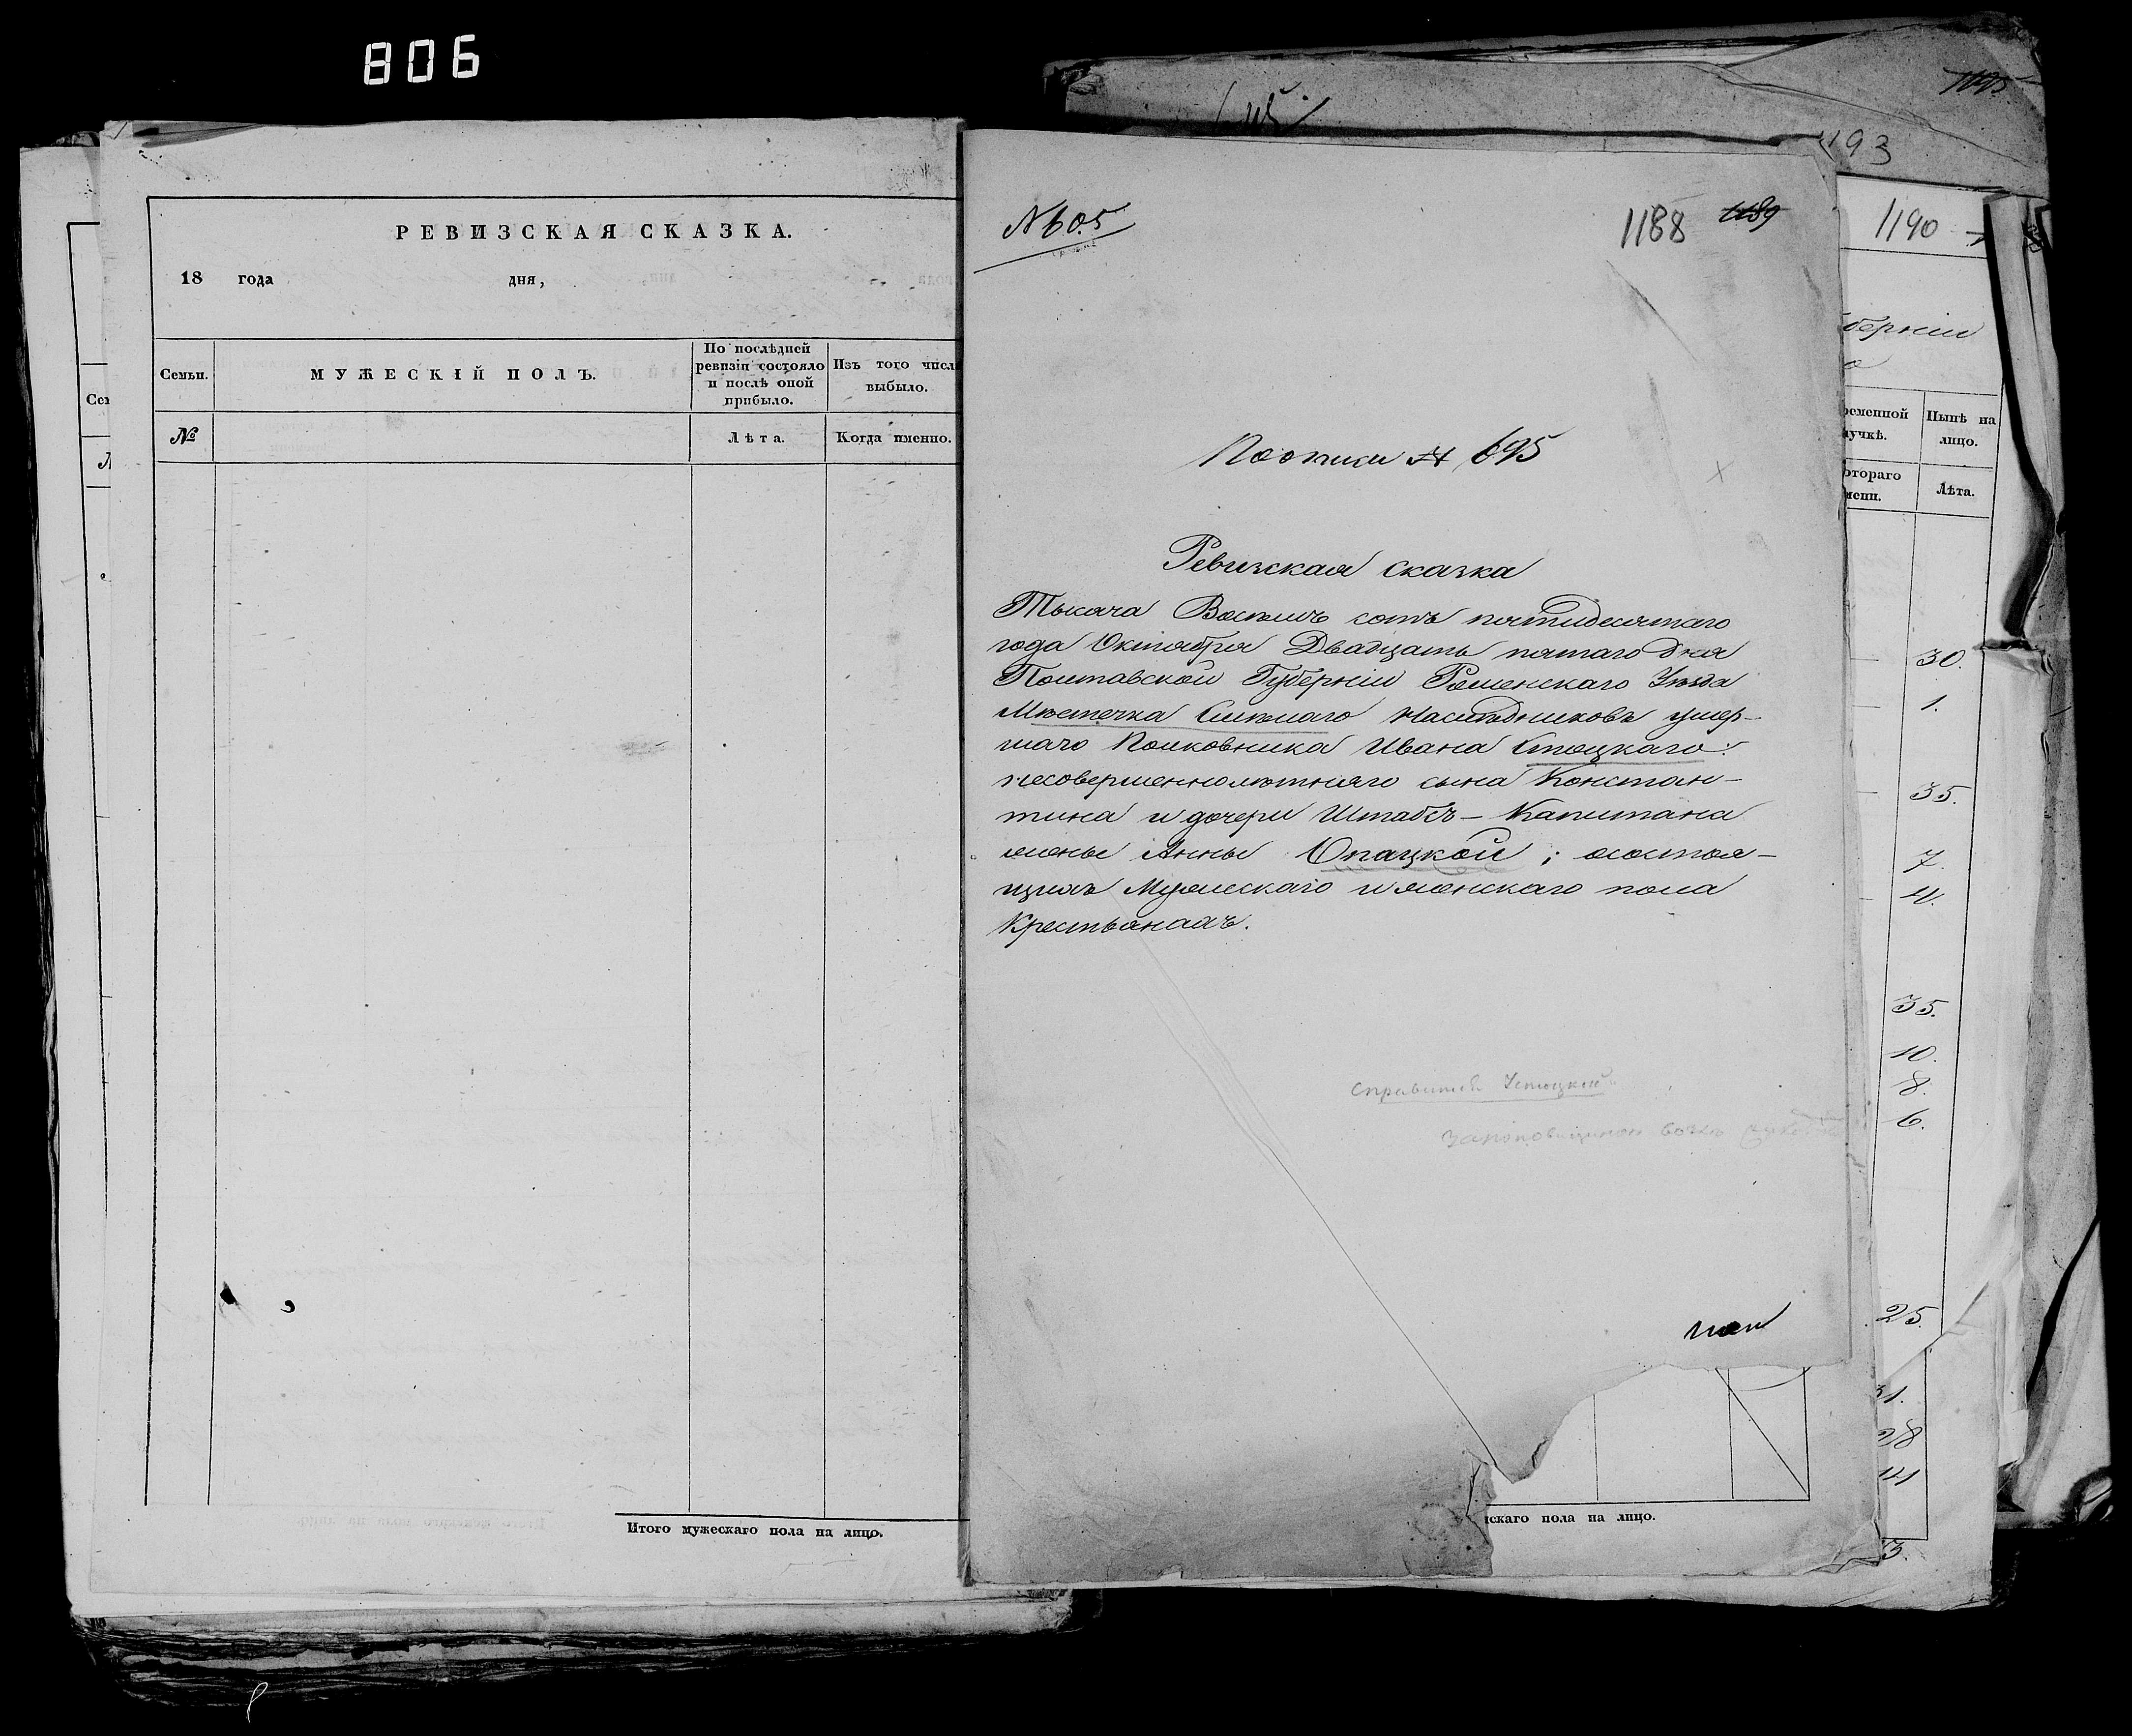 806
РЕВИЗСКАЯ СКАЗКА.
18 года дня,
Семьи.
МУЖЕСКІЙ ПОЛЪ.
По послѣдней ревизіи состояло и послѣ оной прибыло.
Изъ того числа выбыло.
№
Лѣта.
Когда именно.
Итого мужескаго пола на лицо.
№ 605
1188 1189
По описи № 695
Ревизская сказка
Тысяча Восемь сотъ пятидесятаго
года Октября Двадцать пятаго дня
Полтавской Губерніи Роменскаго Уѣзда
Мѣстечка Смѣлаго Наслѣдниковъ умер-
шаго Полковника Ивана Стоцкаго:
несовершеннолѣтняго сына Констан-
тина и дочери Штабсъ-Капитана
жены Анны Опацкой; о состоя-
щихъ Мужескаго и женскаго пола
Крестьянахъ.
нскаго пола на лицо.
1193
1190
берніи
ременной
лучкѣ.
Нынѣ на
лицо.
отораго
мени.
Лѣта.
30.
1.
35.
7.
35.
10.
8.
6.
25.
31.
28